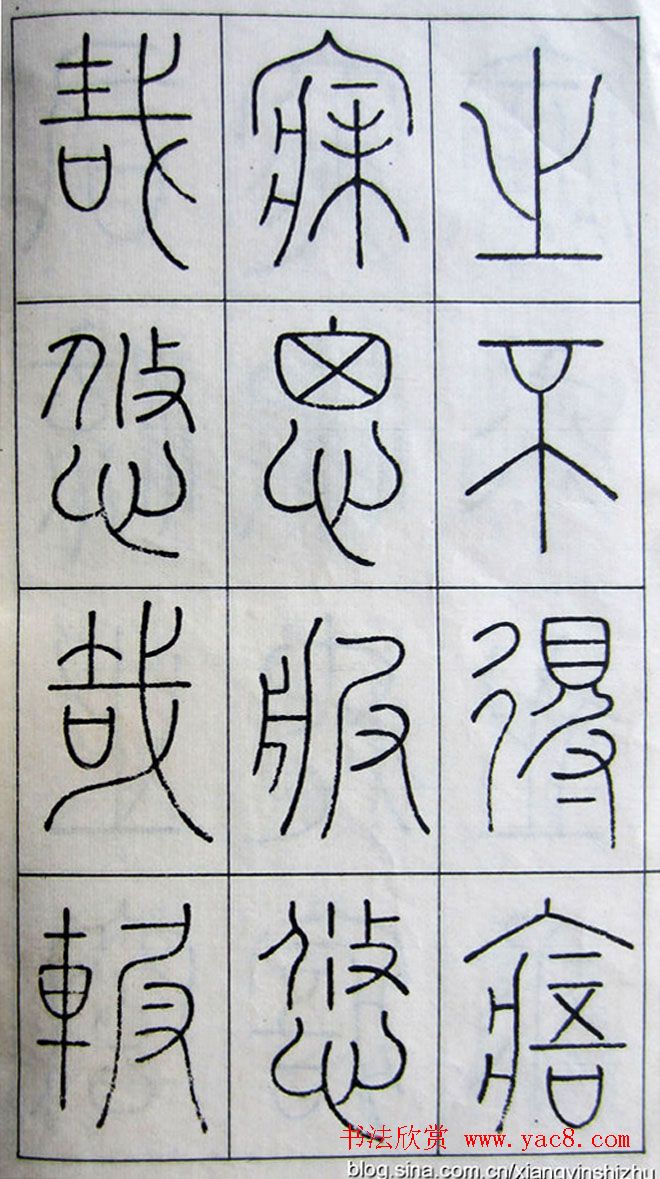 之不得寤
寐思服悠
哉悠哉輾
书法欣赏 www.yac8.com
blog.sina.com.cn/xiangyinshizhu